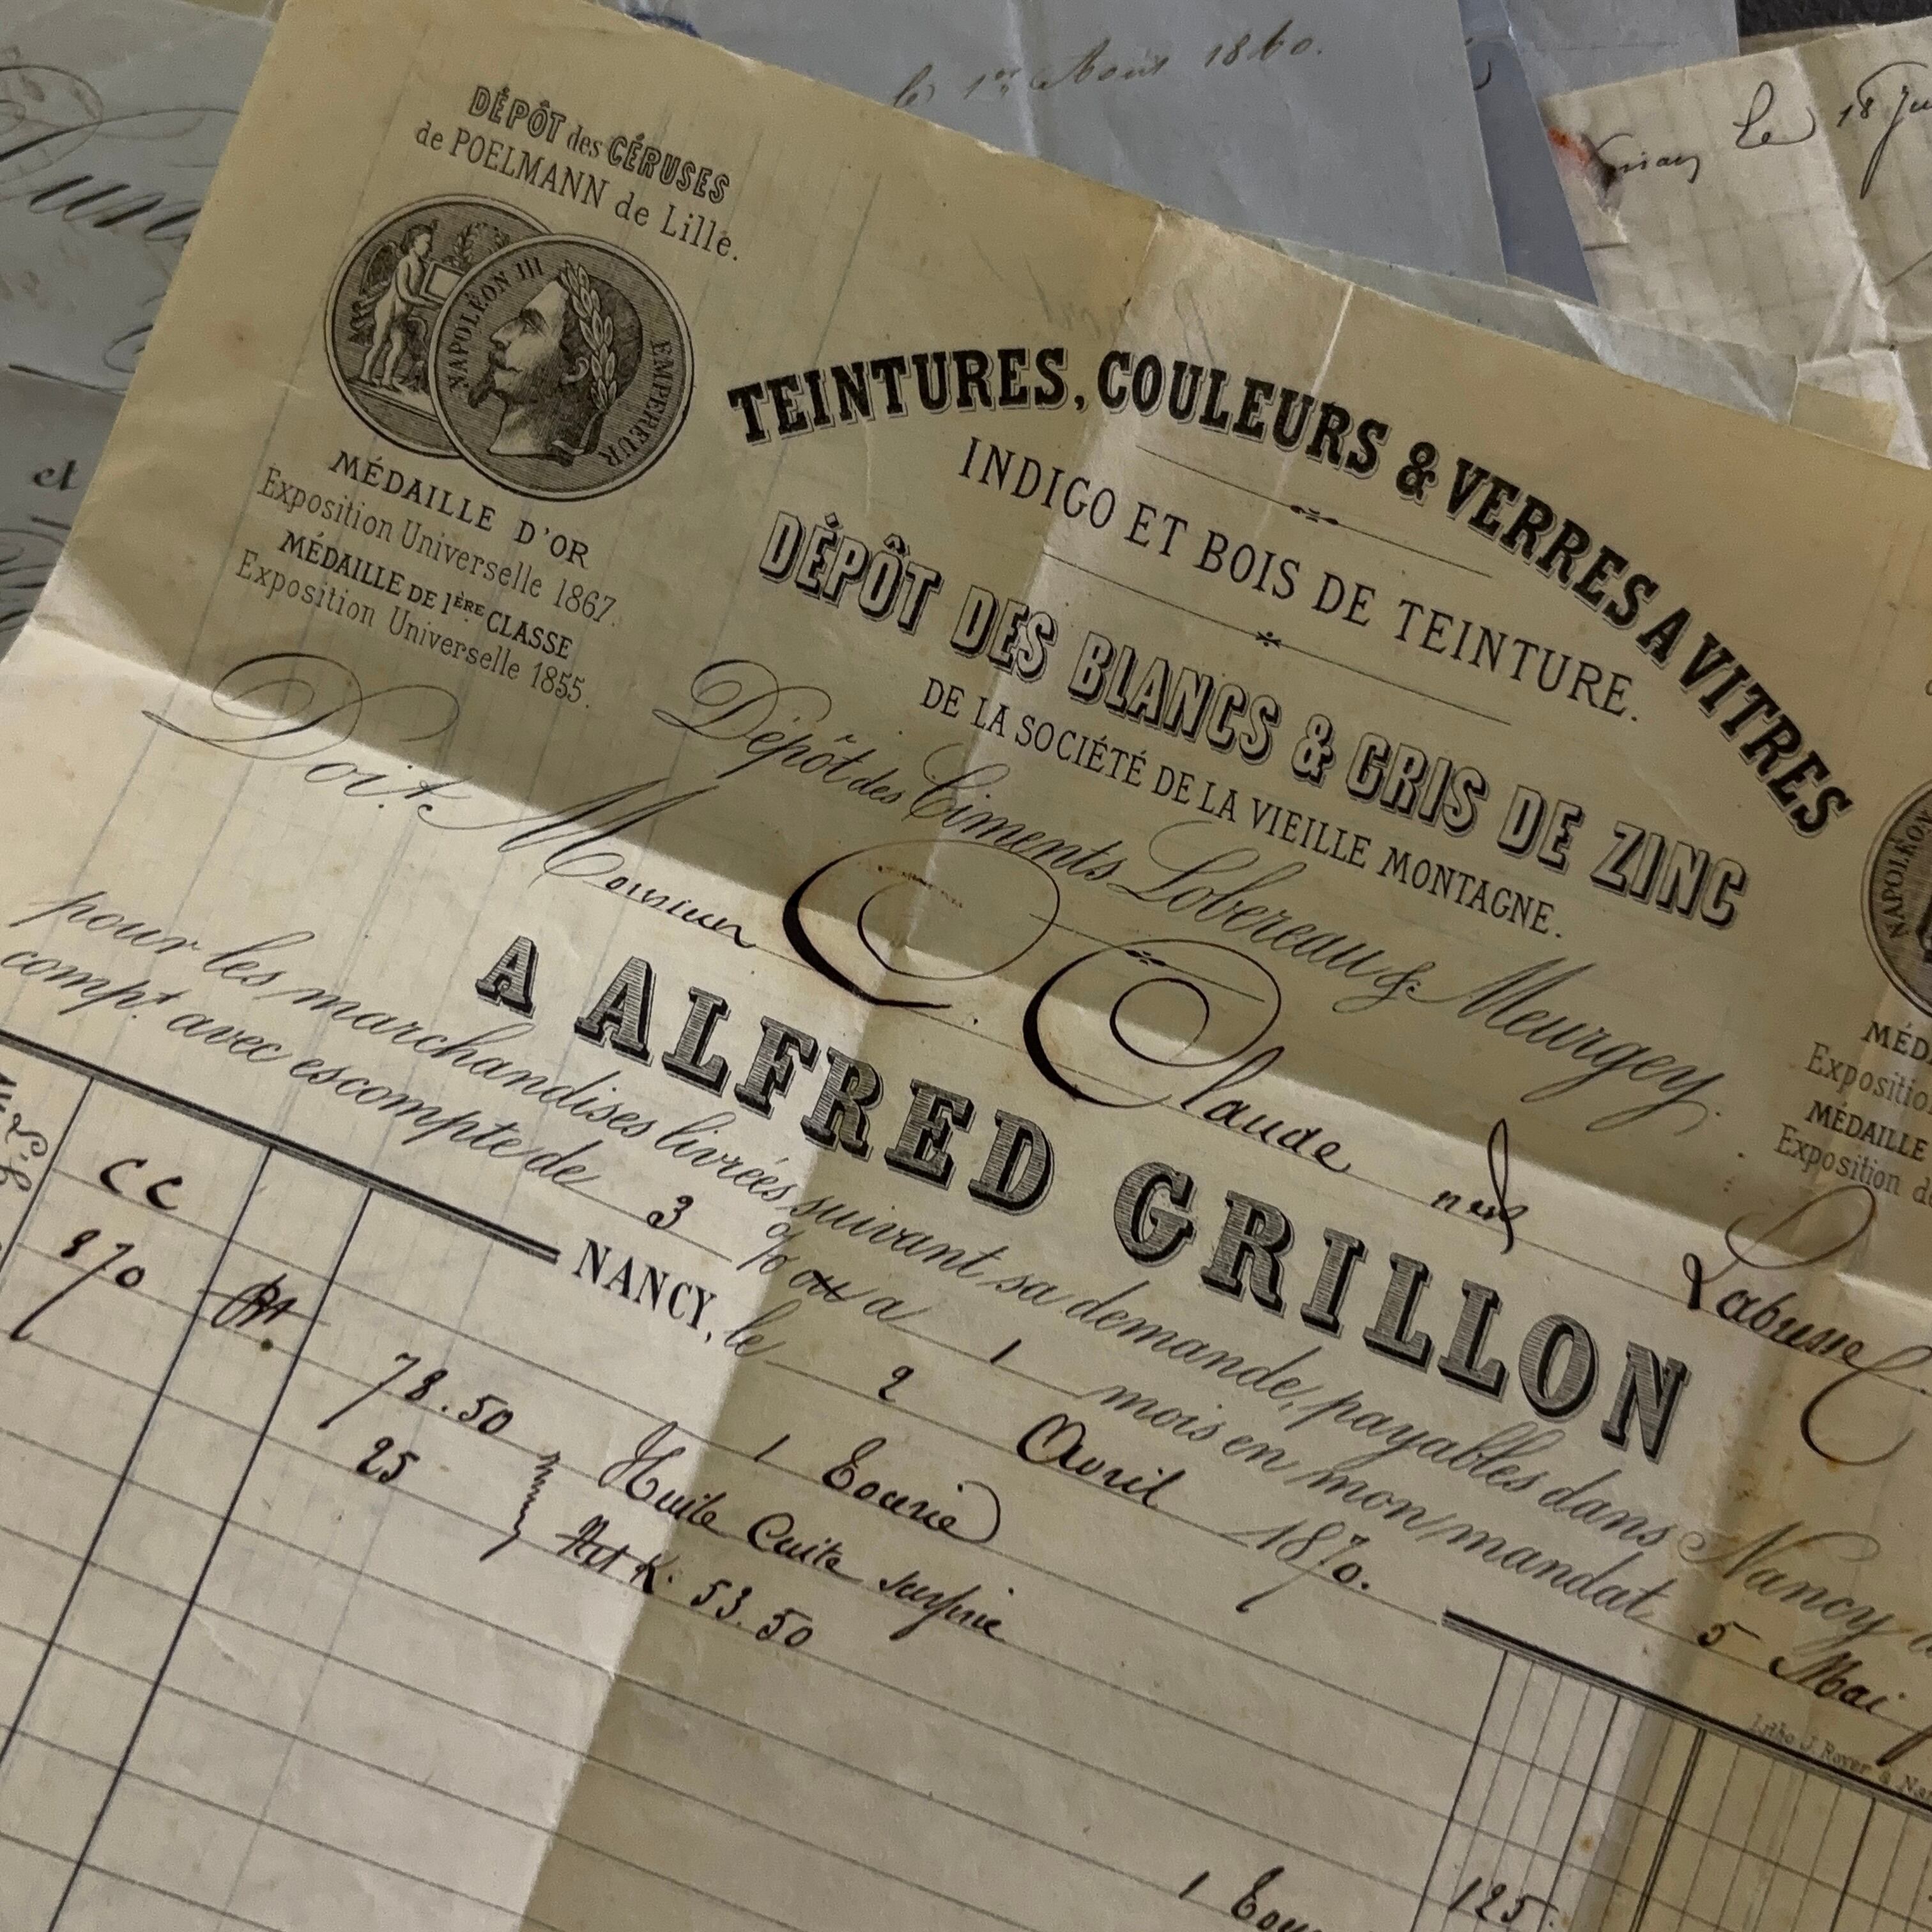 le 1er Aout 1860.
le 18
DÉPÔT des CÉRUSES
de POELMANN de Lille.
NAPOLÉON III EMPEREUR
MÉDAILLE D'OR
Exposition Universelle 1867.
MÉDAILLE DE 1ÈRE CLASSE
Exposition Universelle 1855.
TEINTURES, COULEURS & VERRES A VITRES
INDIGO ET BOIS DE TEINTURE.
DÉPÔT DES BLANCS & GRIS DE ZINC
DE LA SOCIÉTÉ DE LA VIEILLE MONTAGNE.
Dépôt des Ciments Lobereau & Meurgey.
NAPOLÉON
MÉD
Exposition
MÉDAILLE
Exposition d
et
Doit Monsieur C. Claude
A ALFRED GRILLON
pour les marchandises livrées suivant sa demande, payables dans Nancy
compt. avec escompte de 3 % ou a 1 mois en mon mandat 5 Mai
NANCY, le 2 Avril 1870.
Litho J. Royer à Na
CC
870
78.50
25
1 Tourie
Huile Cuite surfine
Net K. 53.50
1 Tou
125.